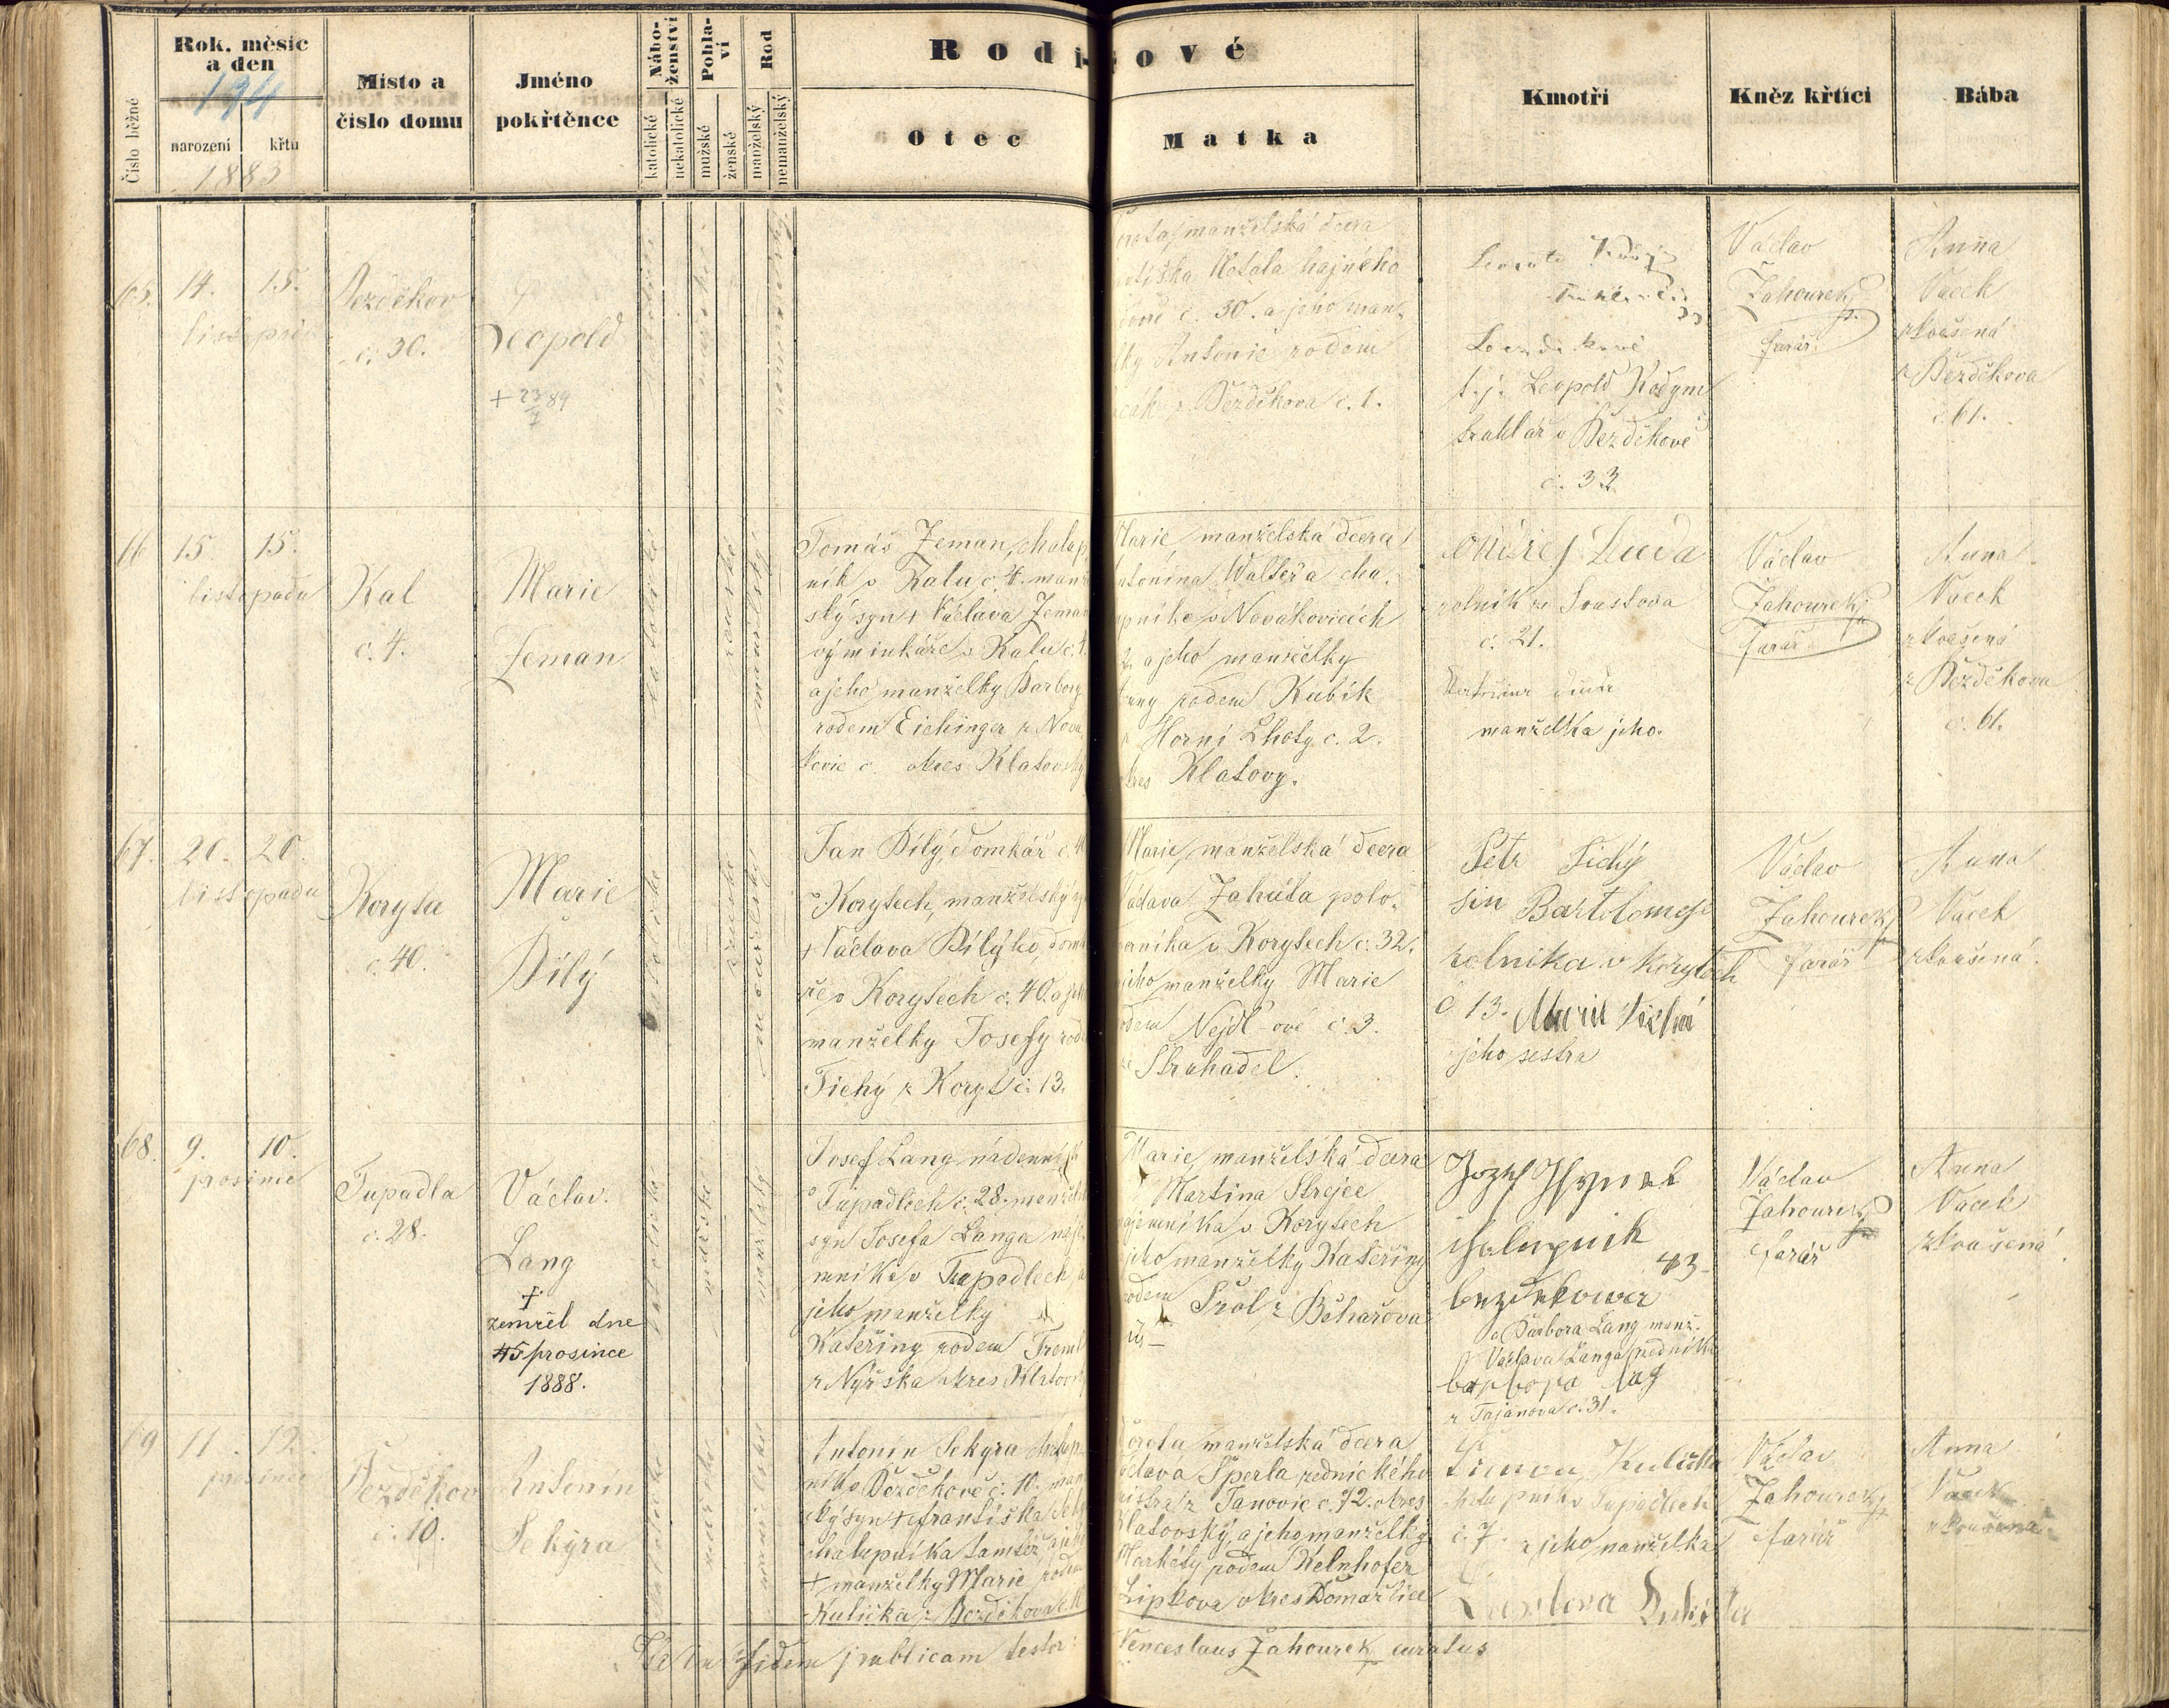 Rok. měsíc
a den
194
Číslo běžné
narození
křtu
1883
Místo a
číslo domu
Jméno
pokřtěnce
Nábo-
ženství
katolické
nekatolické
Pohla-
ví
mužské
ženské
Rod
manželský
nemanželský
Rodičové
Otec
Matka
Kmotři
Kněz křtící
Bába
65.
14. 15.
listopadu
Bezděkov
č. 30.
Leopold
+ 23/7 89
manželská dcera
Netala hajného
č. 30. a jeho man-
Antonie rodem
z Bezděkova č. 1.
t. j. Leopold Kodym
truhlář v Bezděkově
č. 33
Václav
Zahourek
farář
Anna
Vacek
zkoušená
z Bezděkova
č. 61.
15. 15.
listopadu
Kal
č. 4.
Marie
Zeman
katolické
ženské
manželský
Tomáš Zeman, chalup
ník v Kalu č. 4. manž
ský syn + Václava Zeman
výminkáře v Kalu č. 4.
a jeho manželky Barbory
rodem Eichinger z Nová
kovic č. okres Klatovský
Marie manželská dcera
Antonína Waltera cha-
lupníka v Novákovicích
2. a jeho manželky
Anny rodem Kubík
z Horní Lhoty č. 2.
okres Klatovy.
Ondřej Duda
rolník ze Svrstova
č. 21.
manželka jeho.
Václav
Zahourek
farář
Anna
Vacek
zkoušená
z Bezděkova
č. 61.
67. 20. 20.
listopadu
Koryta
č. 40.
Marie
Bílý
katolické
ženské
manželský
Jan Bílý, domkář č. 40
v Korytech, manželský sy
+ Václava Bílýho, dom
ře v Korytech č. 40. a jeh
manželky Josefy rod
Tichý z Koryt č. 13.
Marie, manželská dcera
Václava Zahúta polo-
v Korytech č. 32.
jeho manželky Marie
rodem Nejdl-ové č. 3.
ze Strahadel.
Petr Tichý
sin Bartolomeje
rolnika v Korytech
č 13. Marie Tichá
jeho sestra
Václav
Zahourek
farář
Anna
Vacek
zkoušená.
68. 9. 10.
prosince
Tupadla
č. 28.
Václav.
Lang
+
zemřel dne
15 prosince
1888.
katolické
mužské
manželský
Josef Lang nádenník
v Tupadlech č. 28. manžel
syn Josefa Langa náje
mníka v Tupadlech, a
jeho manželky
Kateřiny rodem Treml
z Nýrska okres Klatovský
Marie, manželská dcera
Martina Strejce
nájemníka v Korytech
jeho manželky Kateřiny
rodem Šrol z Běhařova
Jozef Hynek
chalupnik
43
bezdekowa
a Barbora Lang manž.
Václava Langa zedníka
barbora lag
z Tajanova č. 31.
Václav
Zahourek
farář
Anna
Vacek
zkoušená
69 11. 12.
prosince
Bezděkov
č. 10.
Antonín
Sekýra
katolické
mužské
manželský
Antonín Sekyra chalup-
ník v Bezděkově č. 10. man
ský syn + Františka Seky
chalupníka tamtéž, a jeho
+ manželky Marie rodem
Kulička z Bezděkova č.
Dorota manželská dcera
Václava Šperla zednického
mistra z Janovic č. 72. okres
Klatovský, a jeho manželky
Markéty rodem Kelnhofer
Lipkova okres Domažlice
Šimon Kulička
chalupník v Tupadlech
č. 7. a jeho manželka
Václav
Zahourek
farář
Anna
Vacek
zkoušená
fidem publicam testor:
Venceslaus Zahourek curatus